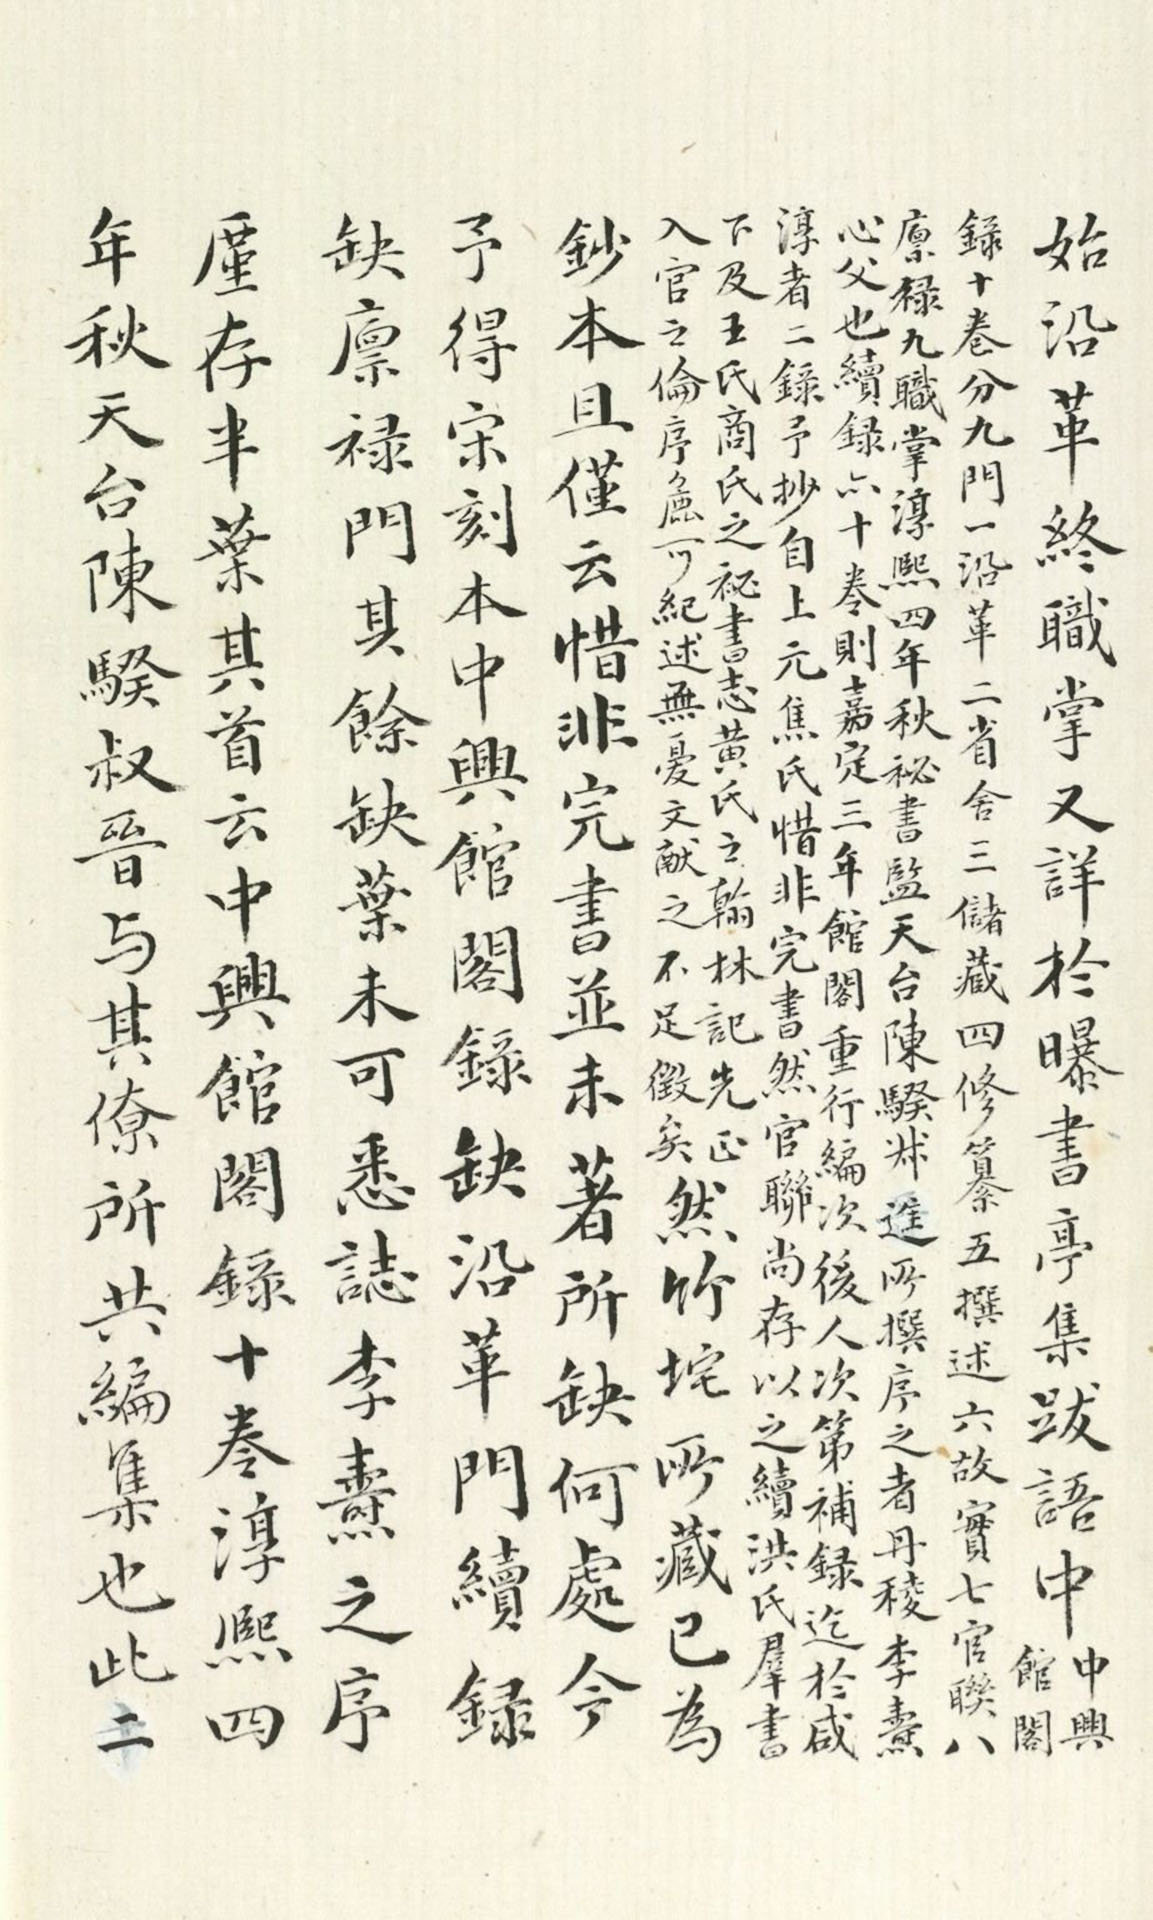 始沿革終職掌又詳於曝書亭集跋語中
中興
館閣
錄十卷分九門一沿革二省舍三儲藏四修纂五撰述六故實七官聯八
廪禄九職掌淳熙四年秋祕書監天台陳騤叔進所撰序之者丹稜李燾
心父也續録亦十卷則嘉定三年館閣重行編次後人次第補録迄於咸
淳者二錄予抄自上元焦氏惜非完書然官聯尚存以之續洪氏羣書
下及王氏商氏之祕書志黃氏之翰林記先正
入官之倫序庶可紀述無憂文献之不足徵矣
然竹垞所藏已為
鈔本且僅云惜非完書並未著所缺何處今
予得宋刻本中興館閣錄缺沿革門續錄
缺廪禄門其餘缺葉未可悉誌李燾之序
廑存半葉其首云中興館閣錄十卷淳熙四
年秋天台陳騤叔晉与其僚所共編集也此二